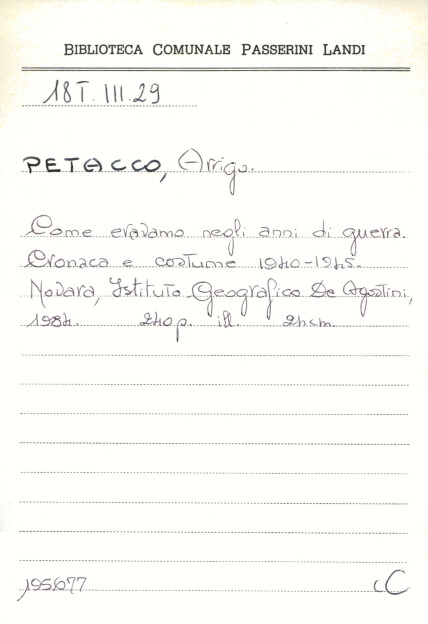 BIBLIOTECA COMUNALE PASSERINI LANDI
18T.III.29
PETACCO, Arrigo.
Come eravamo negli anni di guerra.
Cronaca e costume 1940-1945.
Novara, Istituto Geografico De Agostini,
1984. 240p. ill. 24cm.
195677
C